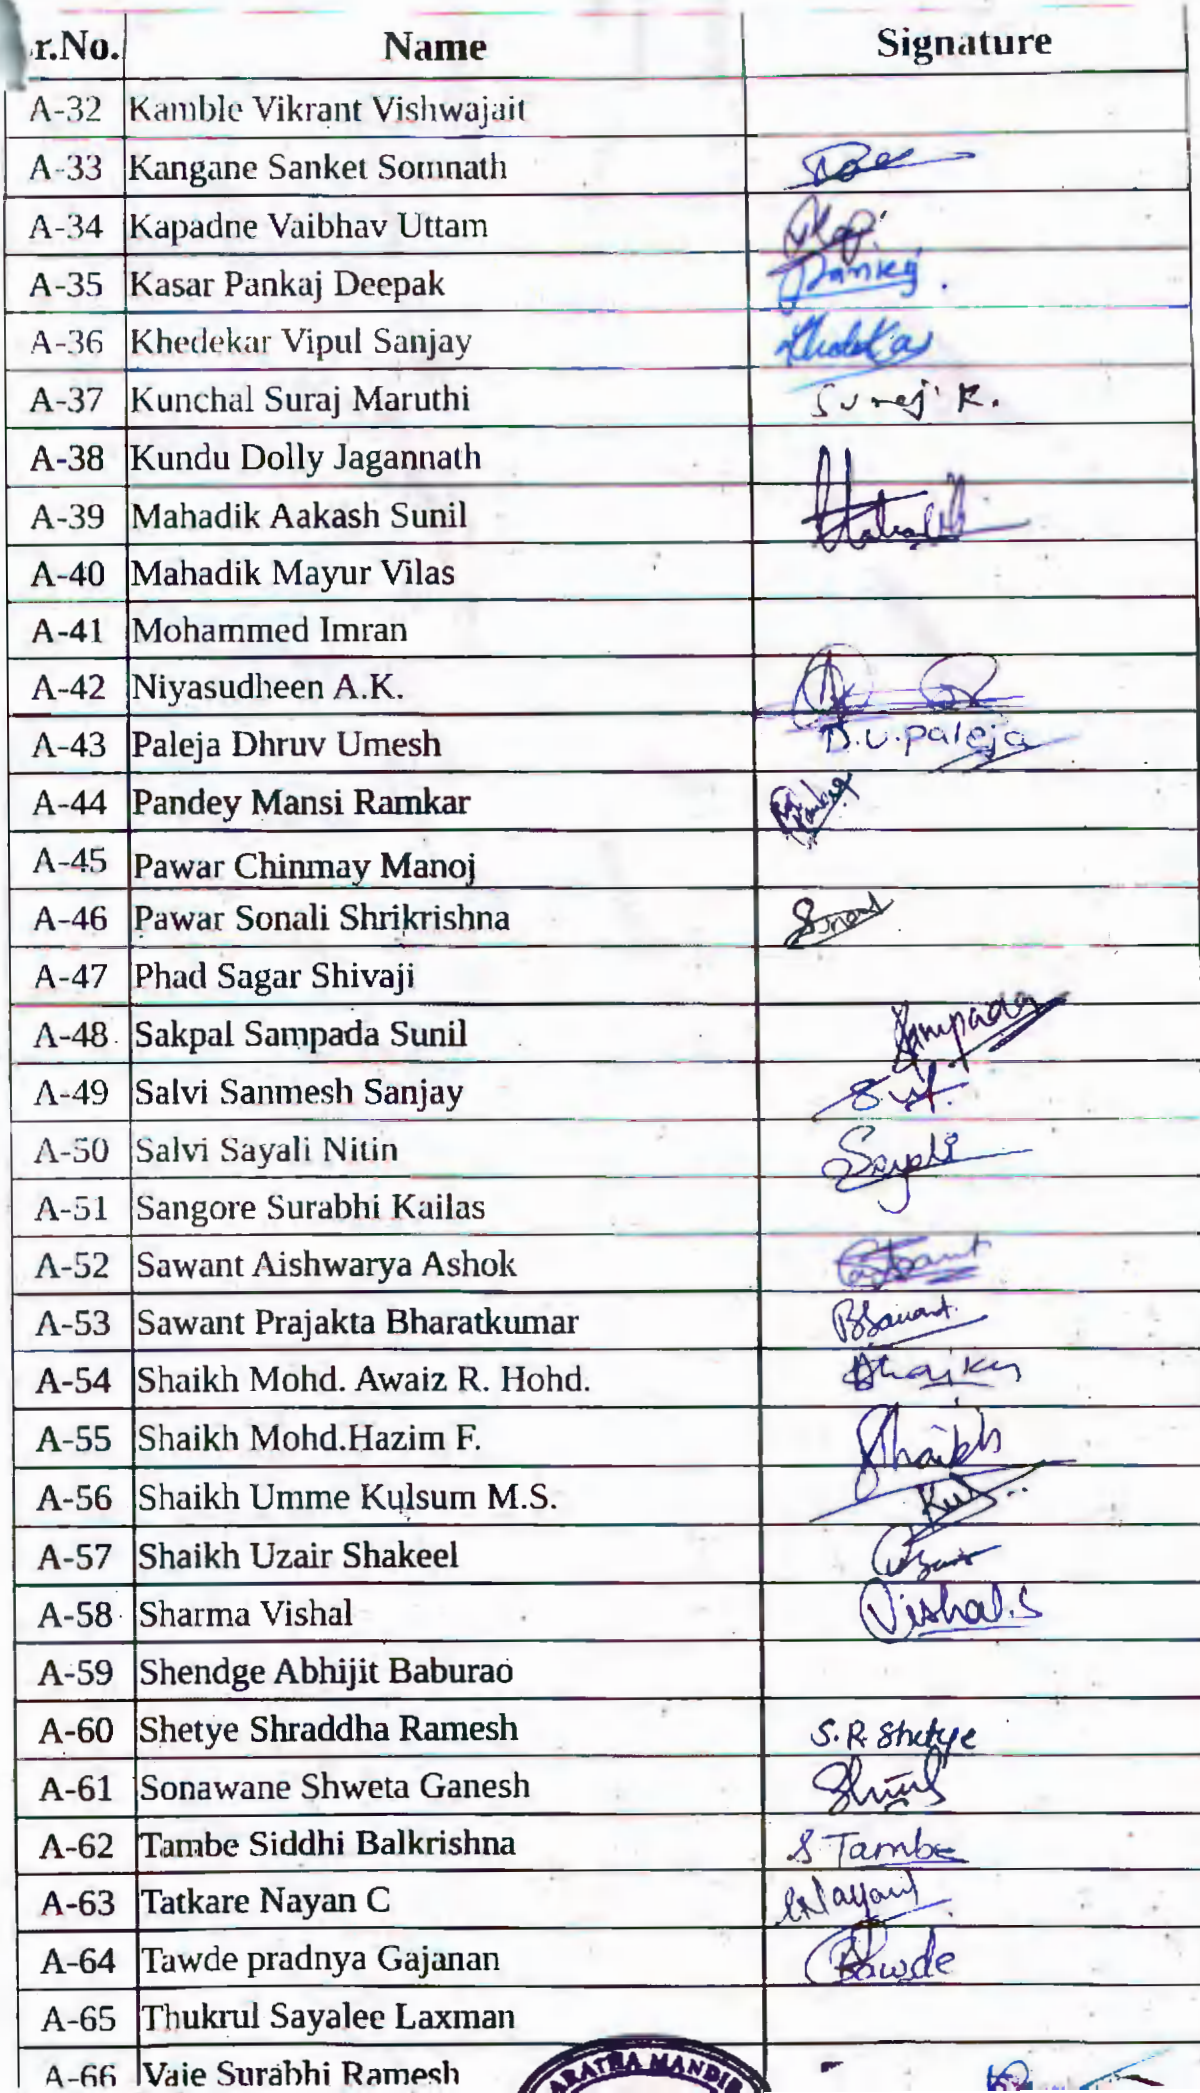 r.No. Name Signature
A-32 Kamble Vikrant Vishwajait
A-33 Kangane Sanket Somnath
A-34 Kapadne Vaibhav Uttam
A-35 Kasar Pankaj Deepak Pankaj.
A-36 Khedekar Vipul Sanjay
A-37 Kunchal Suraj Maruthi Suraj K.
A-38 Kundu Dolly Jagannath
A-39 Mahadik Aakash Sunil
A-40 Mahadik Mayur Vilas
A-41 Mohammed Imran
A-42 Niyasudheen A.K.
A-43 Paleja Dhruv Umesh D.U.paleja
A-44 Pandey Mansi Ramkar
A-45 Pawar Chinmay Manoj
A-46 Pawar Sonali Shrikrishna
A-47 Phad Sagar Shivaji
A-48 Sakpal Sampada Sunil Sampada
A-49 Salvi Sanmesh Sanjay
A-50 Salvi Sayali Nitin Sayali
A-51 Sangore Surabhi Kailas
A-52 Sawant Aishwarya Ashok
A-53 Sawant Prajakta Bharatkumar PBSawant.
A-54 Shaikh Mohd. Awaiz R. Hohd. Shaikh
A-55 Shaikh Mohd.Hazim F. Shaikh
A-56 Shaikh Umme Kulsum M.S.
A-57 Shaikh Uzair Shakeel Uzair
A-58 Sharma Vishal Vishal.S
A-59 Shendge Abhijit Baburao
A-60 Shetye Shraddha Ramesh S.R. Shetye
A-61 Sonawane Shweta Ganesh
A-62 Tambe Siddhi Balkrishna S Tambe
A-63 Tatkare Nayan C Nayan
A-64 Tawde pradnya Gajanan PTawde
A-65 Thukrul Sayalee Laxman
A-66 Vaie Surabhi Ramesh
ARATHA MANDIR